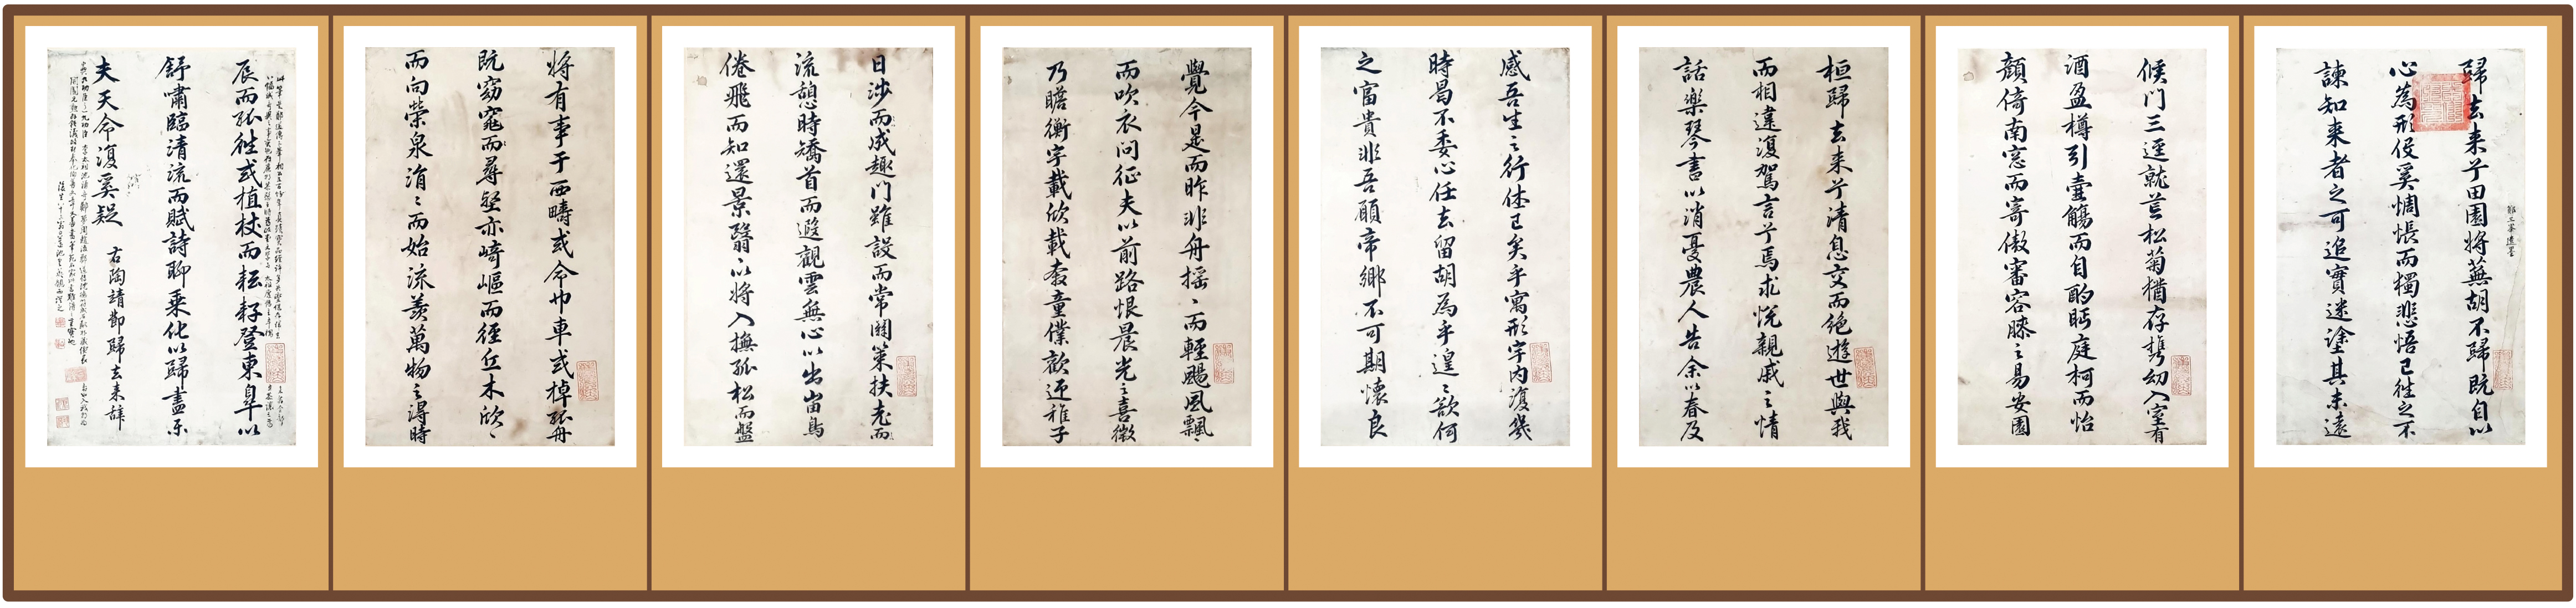 鄭三峯遺墨
歸去来兮田園將蕪胡不歸既自以
心為形役奚惆悵而獨悲悟已徃之不
諫知来者之可追實迷塗其未遠
候門三逕就荒松菊猶存携幼入室有
酒盈樽引壷觴而自酌眄庭柯而怡
顔倚南窓而寄傲審容膝之易安園
桓歸去来兮請息交而絶遊世與我
而相違復駕言兮焉求悅親戚之情
話楽琴書以消憂農人告余以春及
感吾生之行休已矣乎寓形宇内復幾
時曷不委心任去留胡為乎遑〻欲何
之富貴非吾願帝鄉不可期懷良
覺今是而昨非舟揺〻而輕颺風飄〻
而吹衣問征夫以前路恨晨光之喜微
乃瞻衡宇載欣載奔童僕歡迎稚子
日涉而成趣門雖設而常關策扶老而
流憩時矯首而遐觀雲無心以出岫鳥
倦飛而知還景翳〻以將入撫孤松而盤
將有事于西疇或命巾車或棹孤舟
既窈窕而尋壑亦崎嶇而經丘木欣〻
而向榮泉涓〻而始流羨萬物之得時
辰而孤徃或植杖而耘耔登東皐以
舒嘯臨清流而賦詩聊乗化以歸盡乐
夫天命復奚疑 右陶靖節歸去来辞